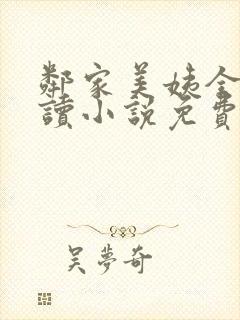 鄰家美姨全
讀小説免費
吴夢奇